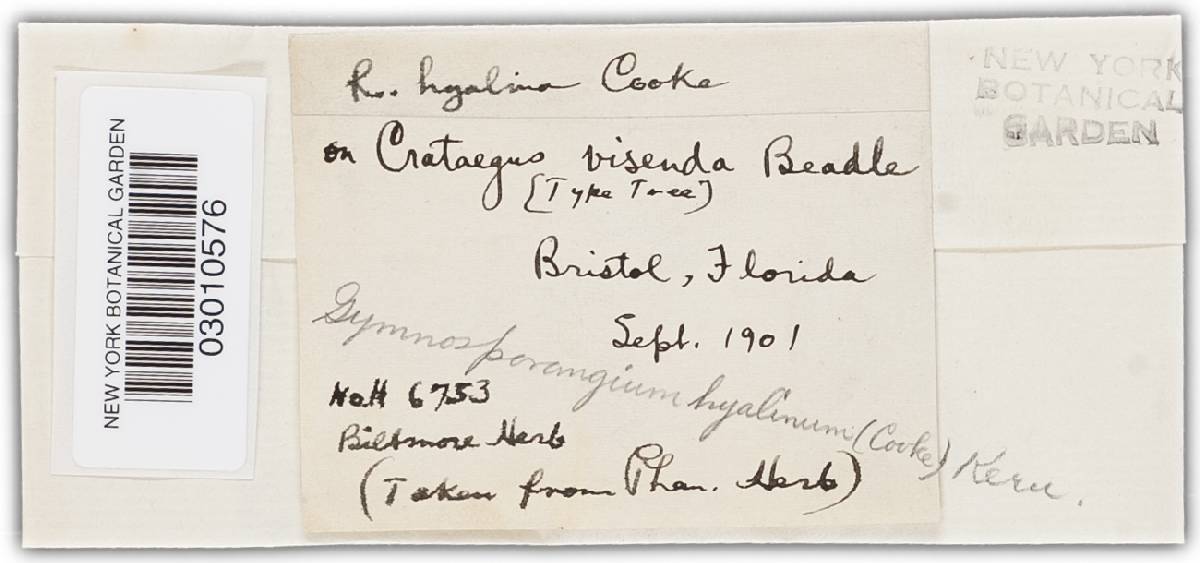 R. hyalina Cooke
on Crataegus visenda Beadle
[Type Tree]
Bristol, Florida
Sept. 1901
Gymnosporangium hyalinum (Cooke) Kern.
No H 6753
Biltmore Herb
(Taken from Phan. Herb)
NEW YORK BOTANICAL GARDEN
03010576
NEW YORK
BOTANICAL
GARDEN